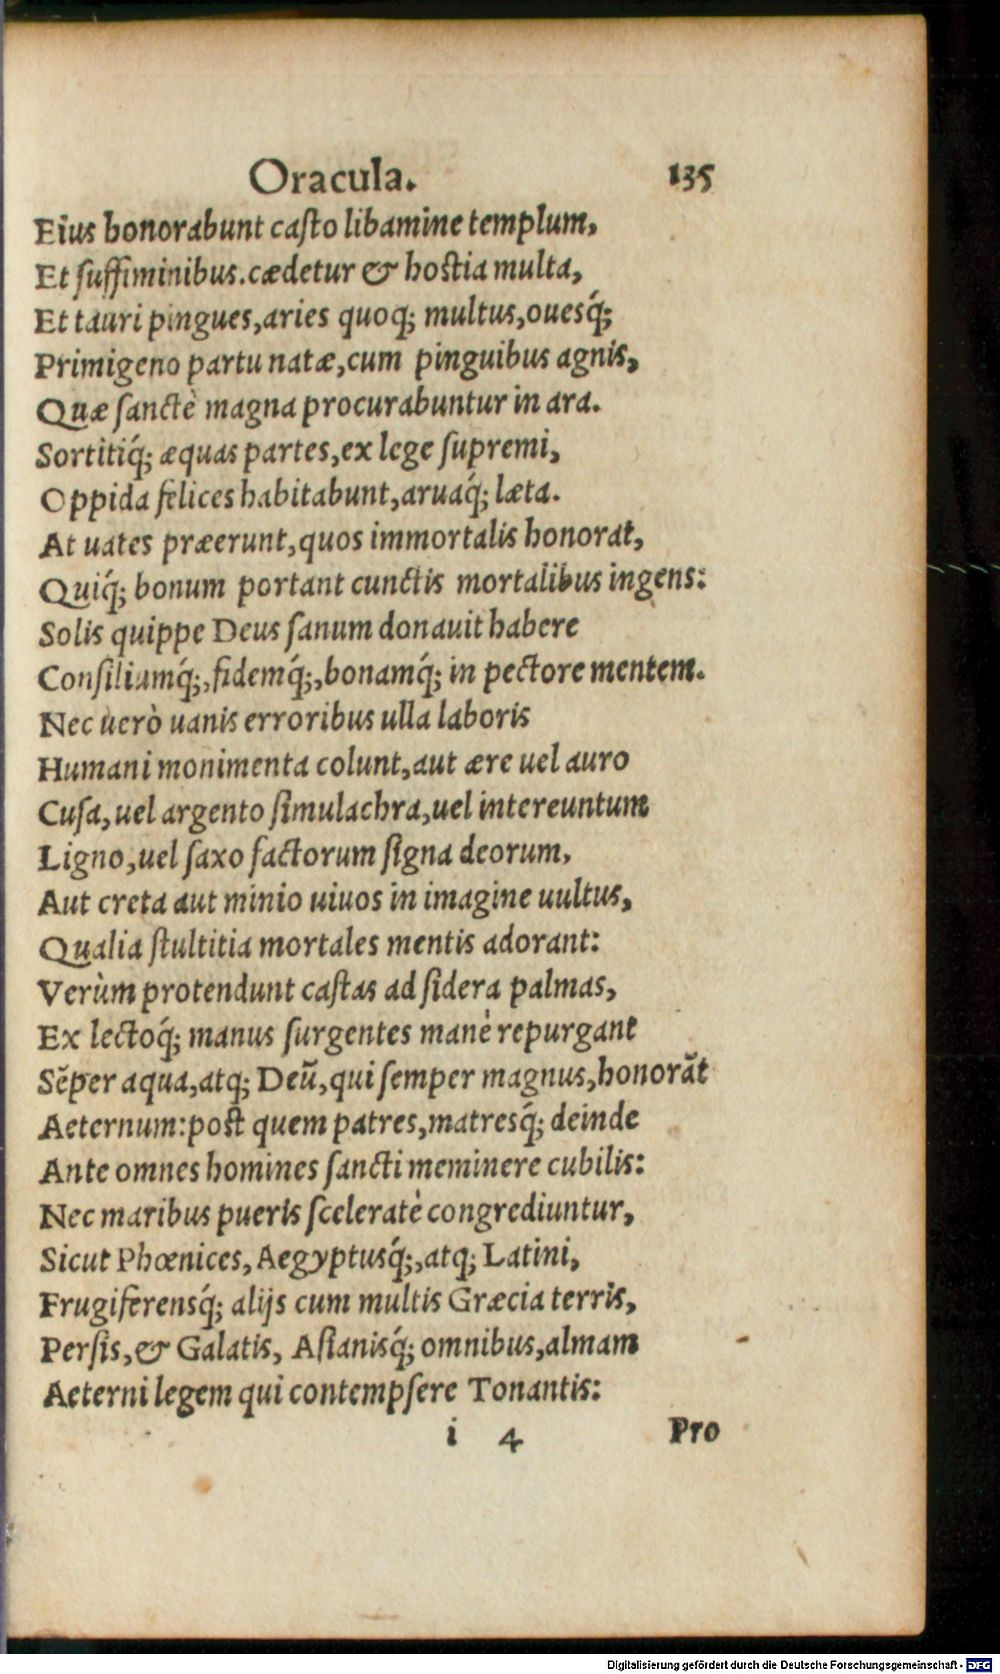 Oracula. 135
Eius honorabunt casto libamine templum,
Et suffiminibus.cædetur & hostia multa,
Et tauri pingues,aries quoq; multus,ouesq́;
Primigeno partu natæ,cum pinguibus agnis,
Quæ sanctè magna procurabuntur in ara.
Sortitiq́; æquas partes,ex lege supremi,
Oppida felices habitabunt,aruaq́; læta.
At uates præerunt,quos immortalis honorat,
Quiq́; bonum portant cunctis mortalibus ingens:
Solis quippe Deus sanum donauit habere
Consiliumq́;,fidemq́;,bonamq́; in pectore mentem.
Nec uerò uanis erroribus ulla laboris
Humani monimenta colunt,aut ære uel auro
Cusa,uel argento simulachra,uel intereuntum
Ligno,uel saxo factorum signa deorum,
Aut creta aut minio uiuos in imagine uultus,
Qualia stultitia mortales mentis adorant:
Verùm protendunt castas ad sidera palmas,
Ex lectoq́; manus surgentes manè repurgant
Sēper aqua,atq; Deū,qui semper magnus,honorāt
Aeternum:post quem patres,matresq́; deinde
Ante omnes homines sancti meminere cubilis:
Nec maribus pueris sceleratè congrediuntur,
Sicut Phœnices, Aegyptusq́;,atq; Latini,
Frugiferensq́; alijs cum multis Græcia terris,
Persis,& Galatis, Asianisq́; omnibus,almam
Aeterni legem qui contempsere Tonantis:
i 4 Pro
Digitalisierung gefördert durch die Deutsche Forschungsgemeinschaft - DFG